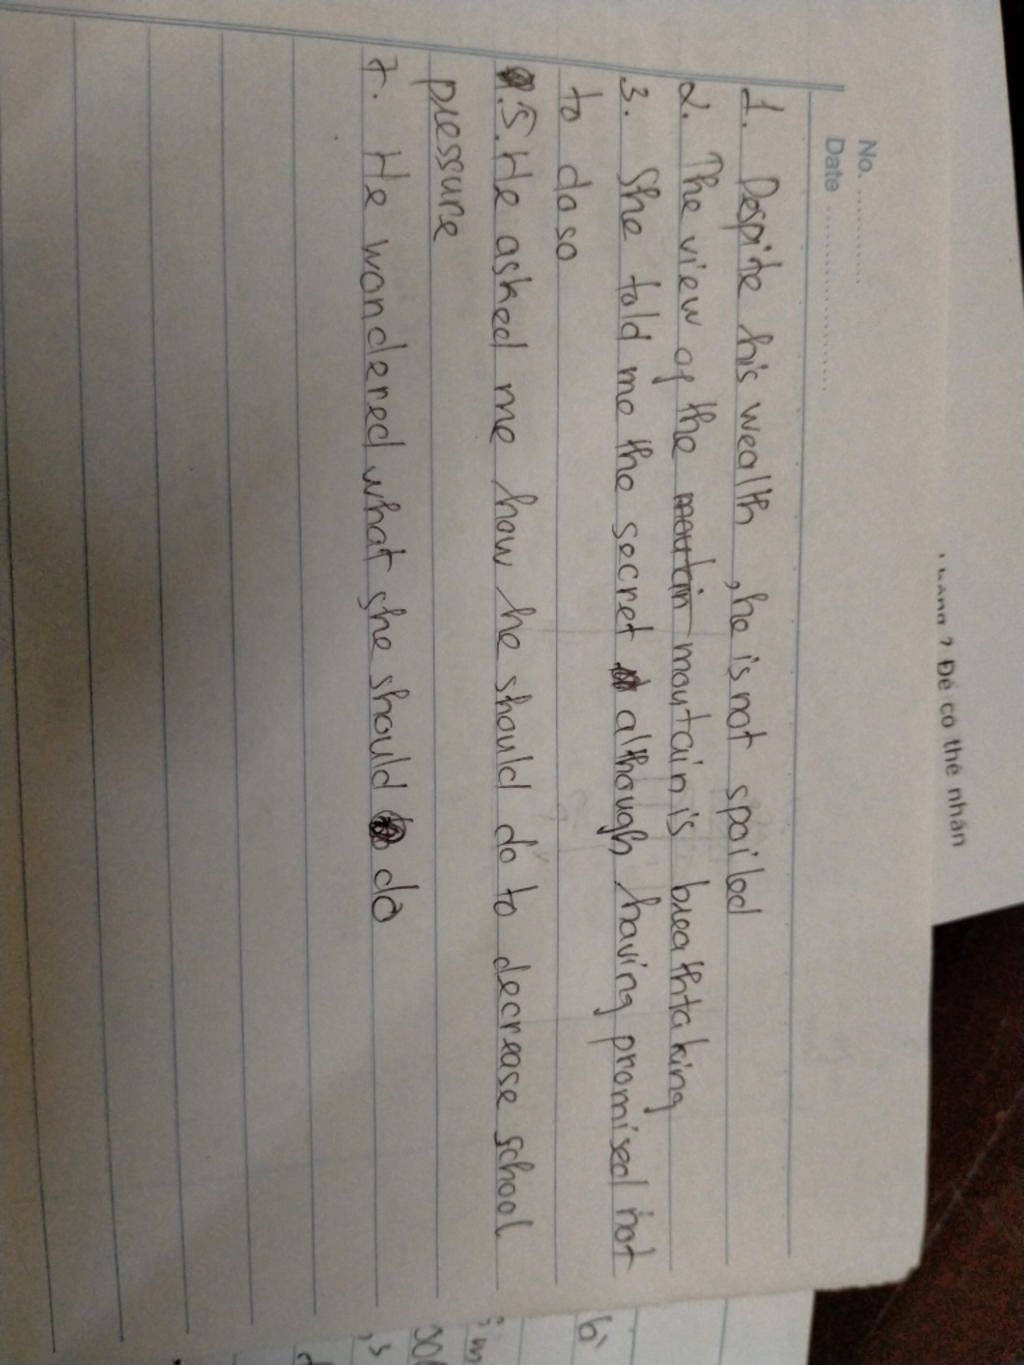 No. ............
Date ........................
1. Despite his wealth , he is not spoiled
2. The view of the moutain moutain is breathtaking
3. She told me the secret although having promised not
to do so
5. He asked me how he should do to decrease school
pressure
7. He wondered what she should do
? Để có thể nhân